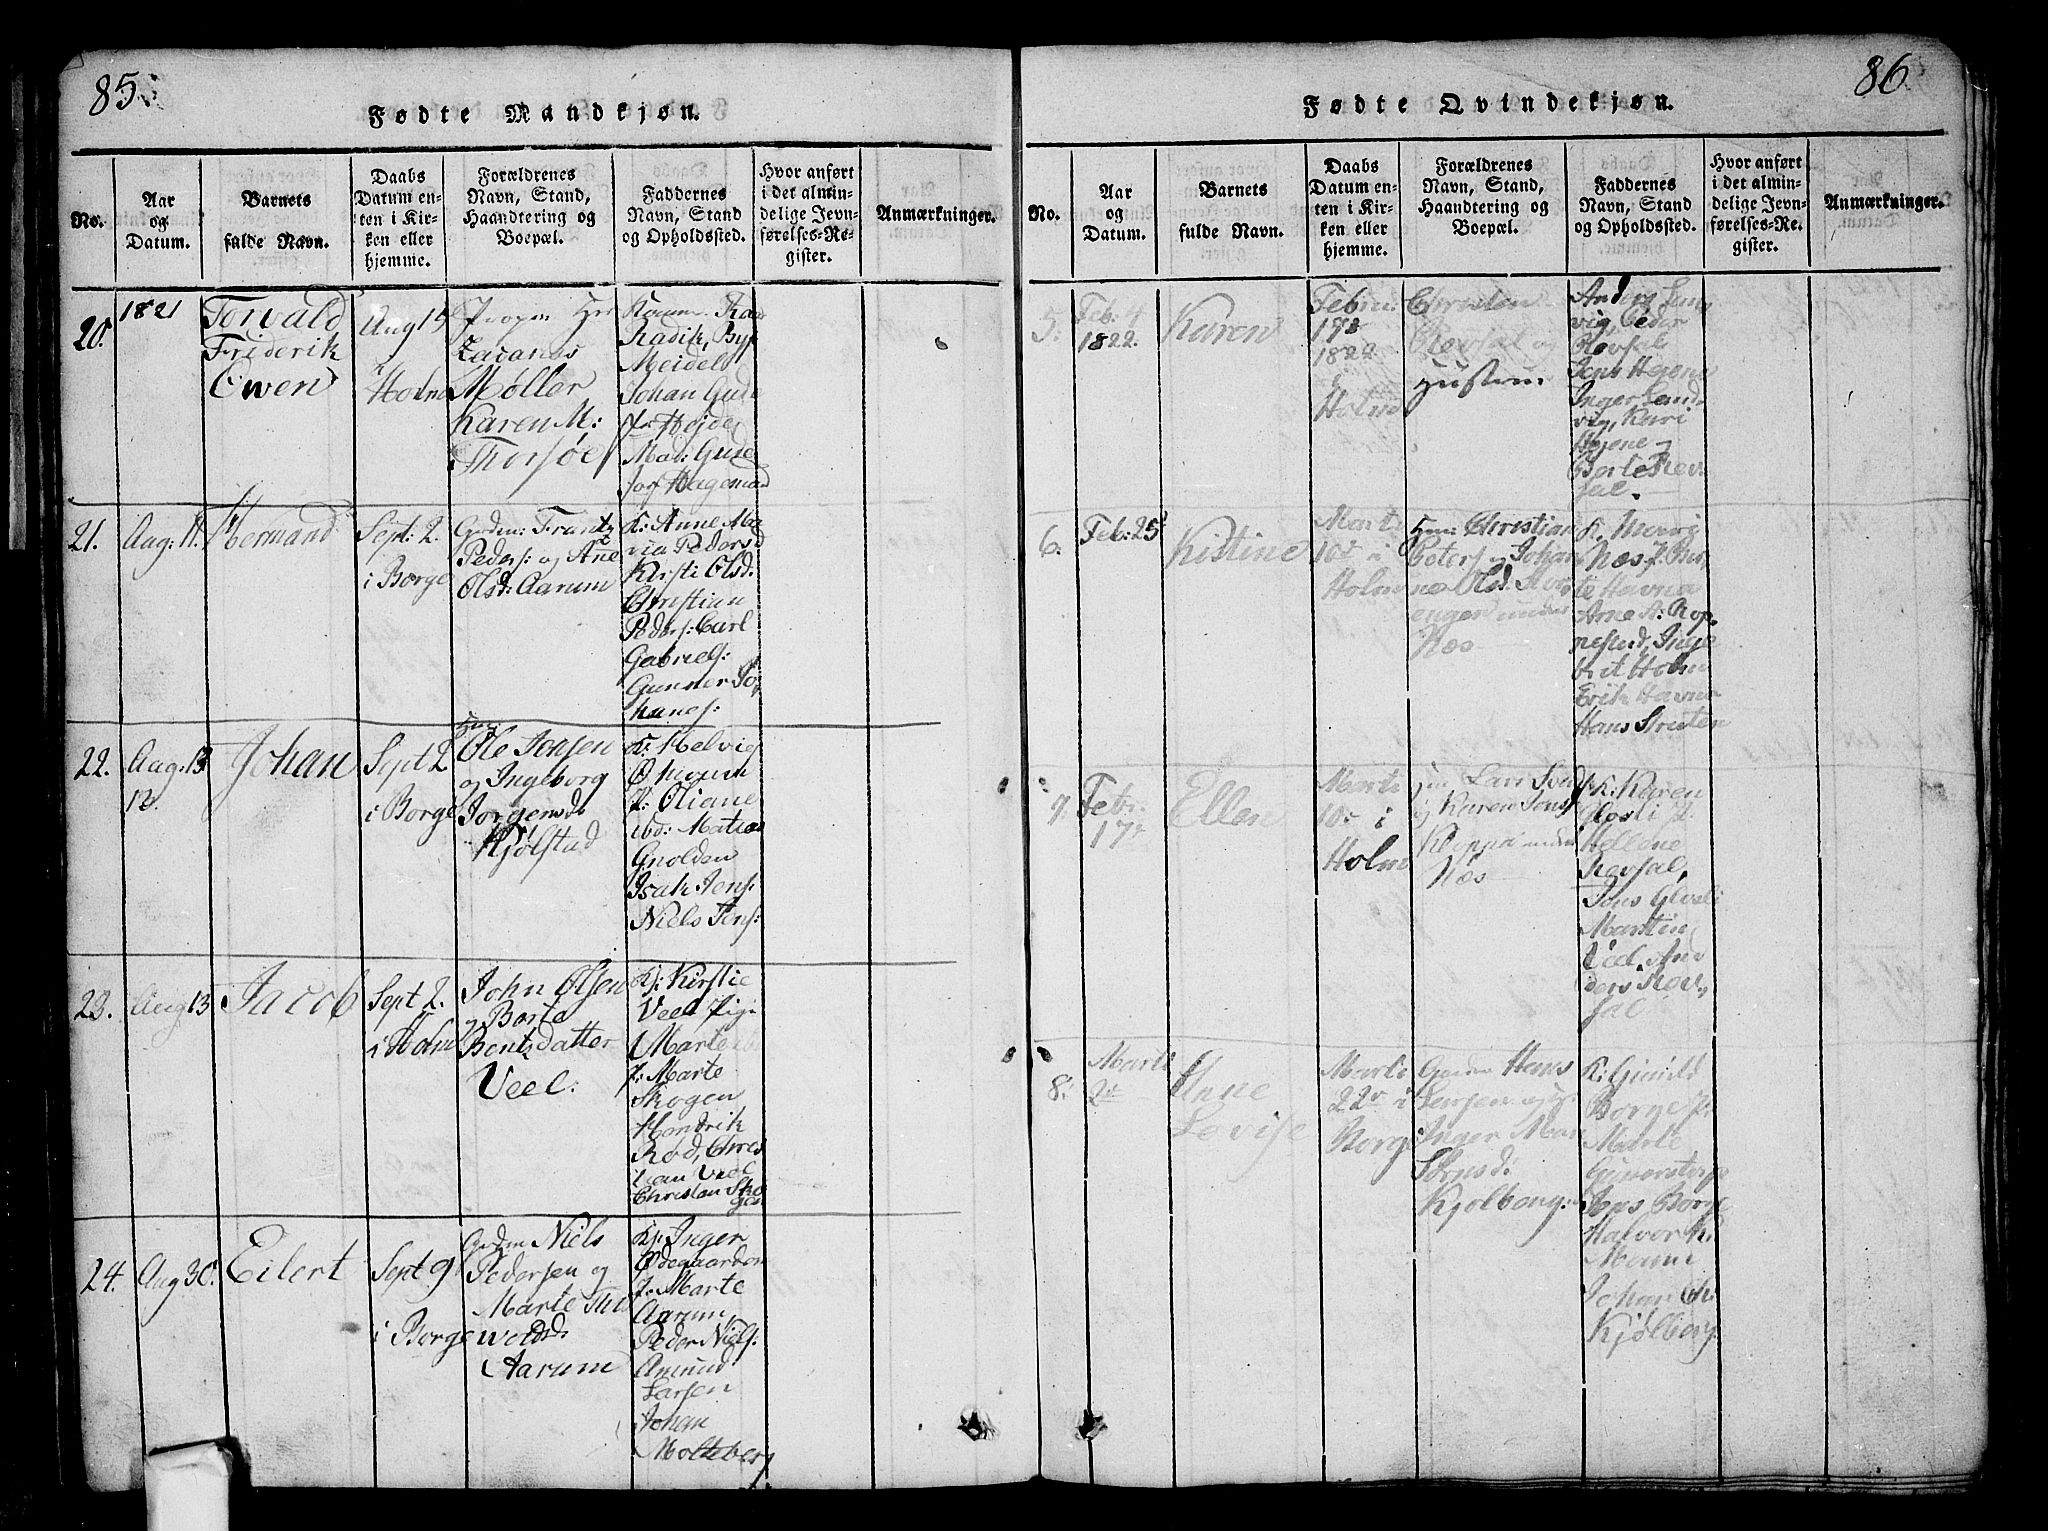 85
Fødte Mandkjøn.
No.
Aar
og
Datum.
Barnets
fulde Navn.
Daabs
Datum en-
ten i Kir-
ken eller
hjemme.
Forældrenes
Navn, Stand,
Haandtering og
Boepæl.
Faddernes
Navn, Stand
og Opholdssted.
Hvor anført
i det almin-
delige Jevn-
førelses-Re-
gister.
Anmærkninger.
20.
1821
Torvald
Friderik
Owen
Aug 15
Holm
Zacarias
Møller
Karen M:
Thorsøe
Radik, Byf
Meidel
Johan Gude
Mad: Gude
Jof Hagemad
21.
Aug: 11.
Hermand
Sept: 2.
i Borge
Gaden: Frantz
Peders: og Ane
Olsd: Aarum
K: Anne Ma
ria Pedersd
Kirsti Olsd:
Christian
Peders: Carl
Gabriels:
Gunder Jo
hanes:
22.
Aug: 13
12.
Johan
Sept 2
i Borge
Ole Jonsen
og Ingeborg
Jorgensd
Kjølstad
K: Helvig
Thorum
P: Oliane
ibd: Matias
Gnolden
Isak Jens:
Niels Jens:
23.
Aug 13
Jacob
Sept 2.
i Holm
John Olsen
og Borte
Bentsdatter
Veel:
Kj: Kirstie
Veel Pig:
Marte
P: Marte
Skogen
Hendrik
Rød, Chres
tian Veel
Christen Sko
gen
24.
Aug 30.
Eilert
Sept 9
i Borge
Gaden Niels
Pedersen og
Marte Tho
woldsd
Aarum
Kj: Inger
Ødegaarden
P: Marte
Aarum
Peder Niels:
Amund
Larsen
Johan
Molteberg
86
Fødte Qvindekjøn.
No.
Aar
og
Datum.
Barnets
fulde Navn.
Daabs
Datum en-
ten i Kir-
ken eller
hjemme.
Forældrenes
Navn, Stand,
Haandtering og
Boepæl.
Faddernes
Navn, Stand
og Opholdssted.
Hvor anført
i det almin-
delige Jevn-
førelses-Re-
gister.
Anmærkninger.
5.
Feb: 4
1822.
Karen
Febru:
17
1822
i
Holm
Christen
Revsal og
Hustru
Anders Lane
vig, Peder
Revsal
Jens Hejene
Inger Land
vig, Kari
Hejene
Berte Rev
sal.
6.
Feb: 25
Kistine
Marti
10 i
Holm
Huu: Christian
Peters: og Johan
ne Olsd: Stors
enger under
Næs
K. Maria
Næs P. Ber
te Havna
Arne A: Rop
nestad, Inge
bret Holm
Erik Havna
Hans Struten
7.
Febr:
17
Ellen
Marti
10 i
Holm
Lars
Karen Jons
Kleppa under
Næs
K: Karen
Glosli P.
Hellene
Revsal,
Jens Glosli
Martin
Veel. An
ders Rev
sal
8.
Marti
2
Anne
Lovise
Marti
22 i
Borge
Gaden Hans
Jensen og
Inger Mar
Stensd:
Kjolberg:
K: Gunild
Borge P:
Marte
Gunerstorp
Jens Borge
Halvor K.
Moum
Johan Ch:
Kjølberg